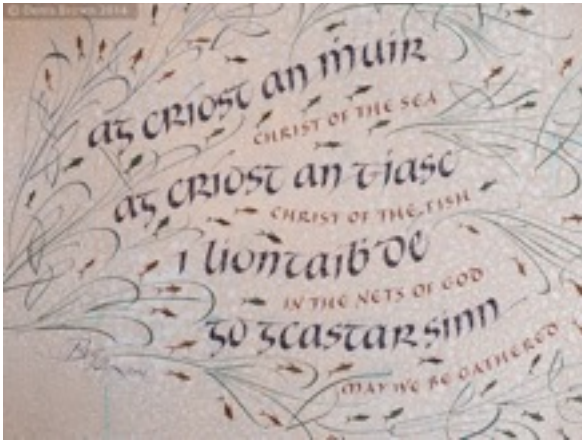 © Denis Brown 2014
ag Críost an ṁuir
CHRIST OF THE SEA
ag Críost an t-iasc
CHRIST OF THE FISH
i líontaiḃ Dé
IN THE NETS OF GOD
go gcastar sinn
MAY WE BE GATHERED